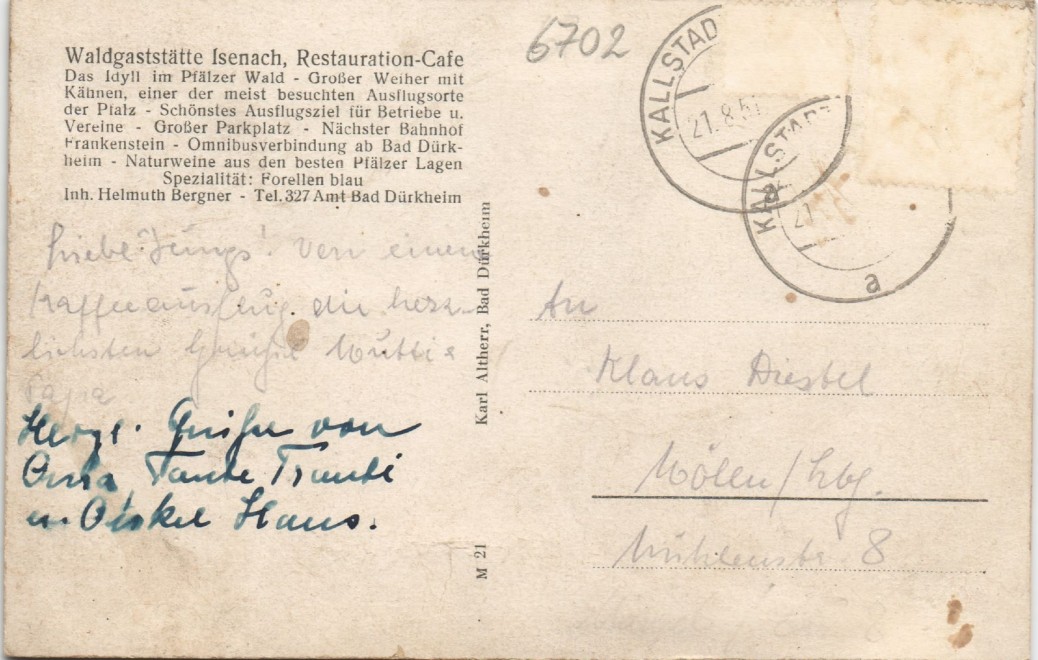 Waldgaststätte Isenach, Restauration-Cafe
Das Idyll im Pfälzer Wald - Großer Weiher mit
Kähnen, einer der meist besuchten Ausflugsorte
der Pfalz - Schönstes Ausflugsziel für Betriebe u.
Vereine - Großer Parkplatz - Nächster Bahnhof
Frankenstein - Omnibusverbindung ab Bad Dürk-
heim - Naturweine aus den besten Pfälzer Lagen
Spezialität: Forellen blau
Inh. Helmuth Bergner - Tel. 327 Amt Bad Dürkheim
Liebe Jungs! Von einem
Kaffeeausflug die herz-
lichsten Grüße Mutti &
Papa
Herzl. Grüße von
Oma, Tante Traudi
u. Onkel Hans.
Karl Altherr, Bad Dürkheim
M 21
6702
KALLSTADT
21.8.5
a
KALLSTADT
21
a
An
Klaus Diestel
Mölln/Lbg.
Mühlenstr. 8